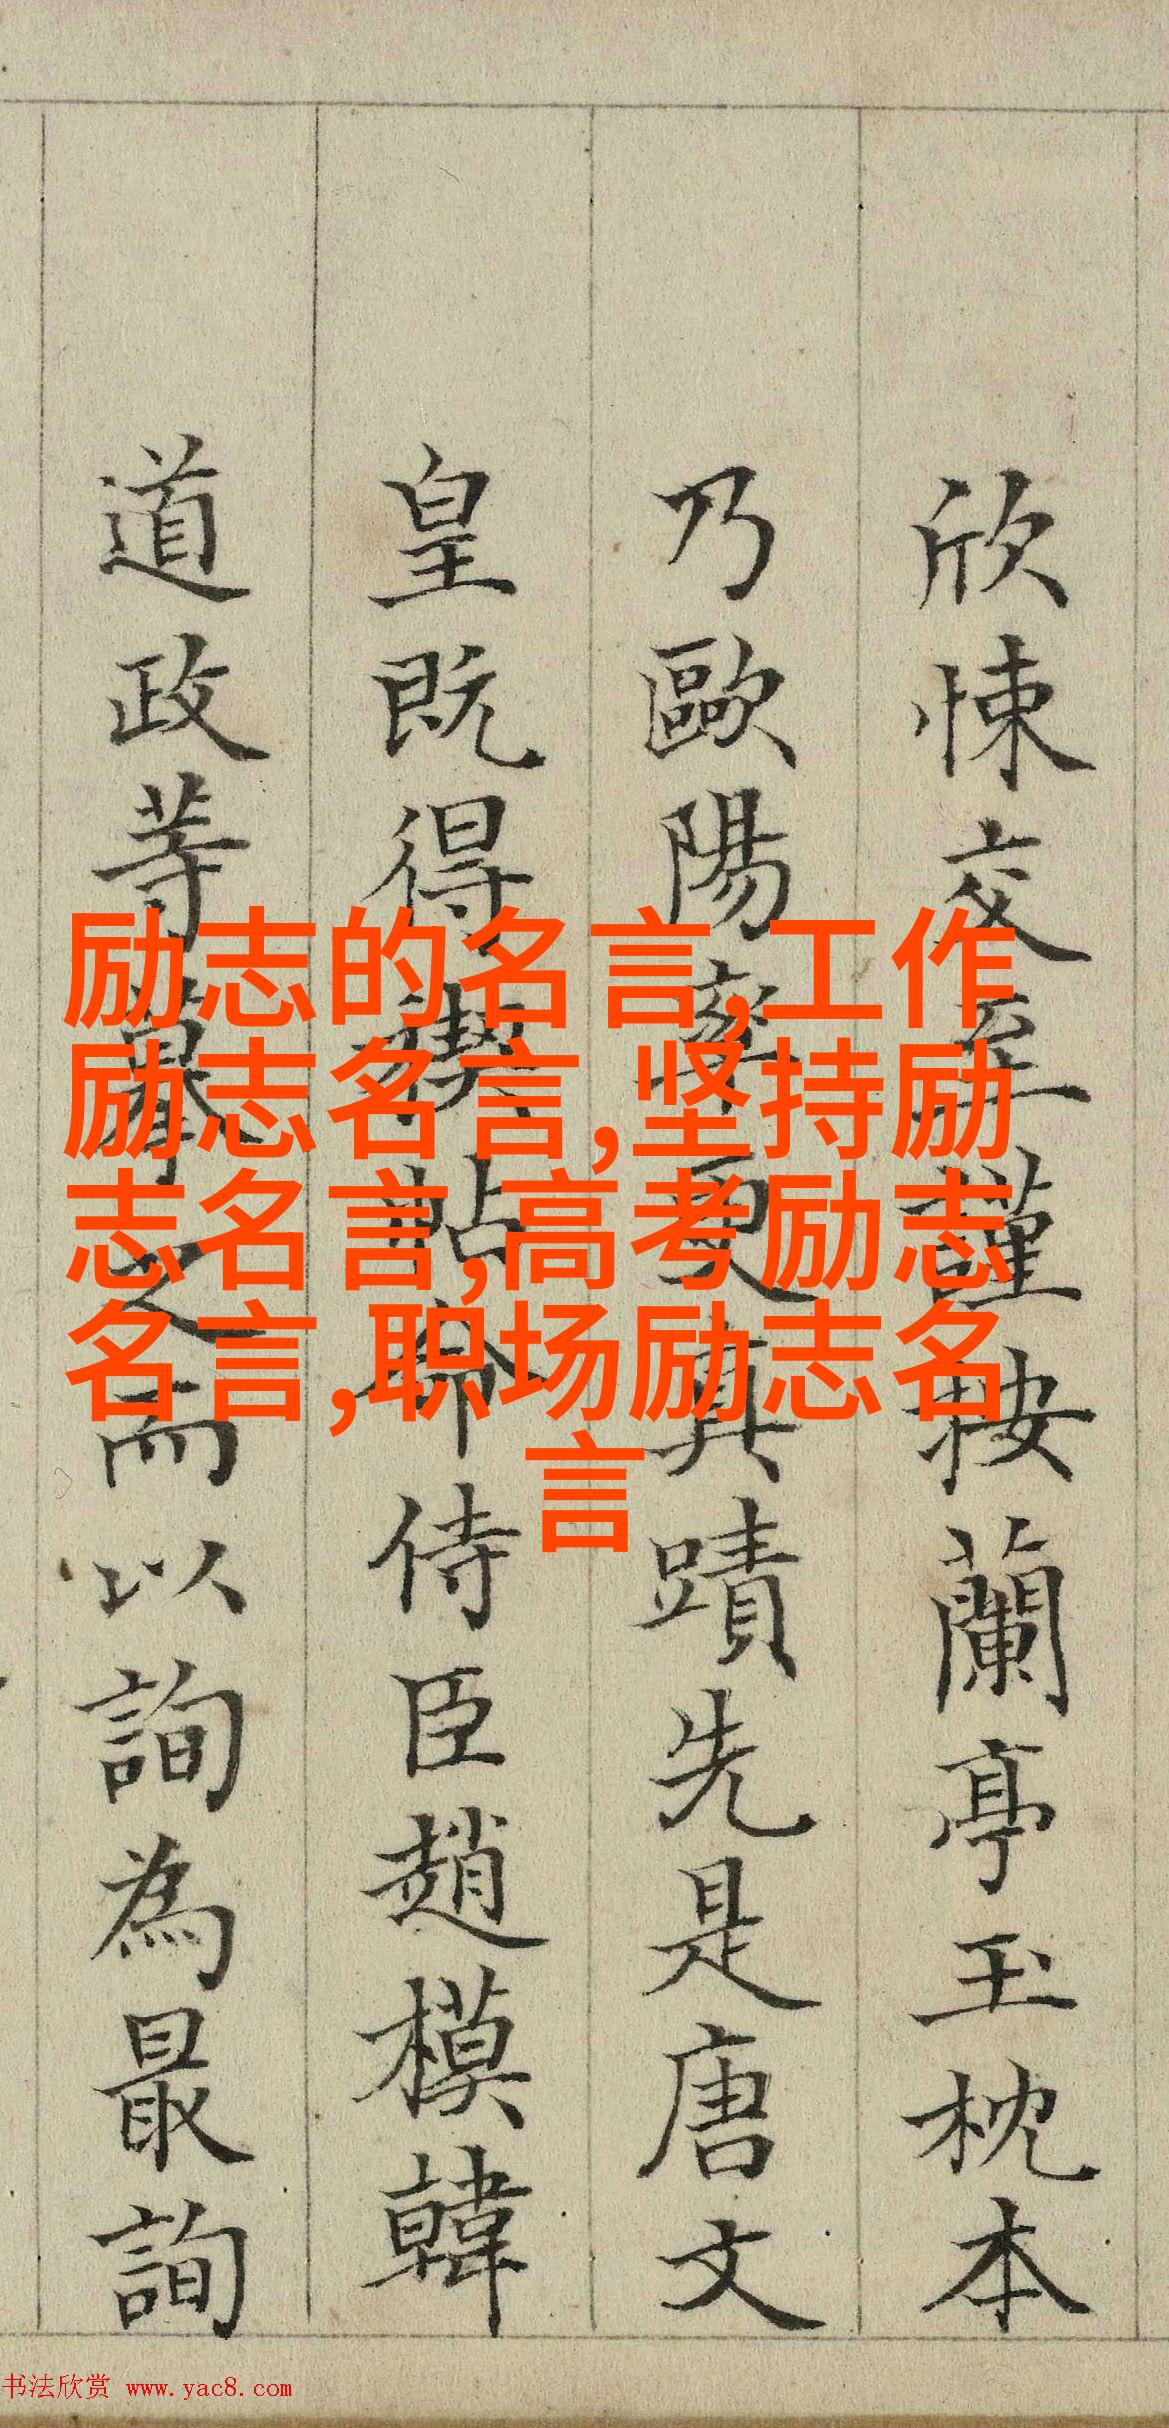 欣悚交至謹按蘭亭玉枕本
乃歐陽率更真蹟先是唐文
皇既得禊帖命侍臣趙模韓
道政等摹之而以詢為最詢
励志的名言,工作
励志名言,坚持励
志名言,高考励志
名言,职场励志名
言
书法欣赏 www.yac8.com